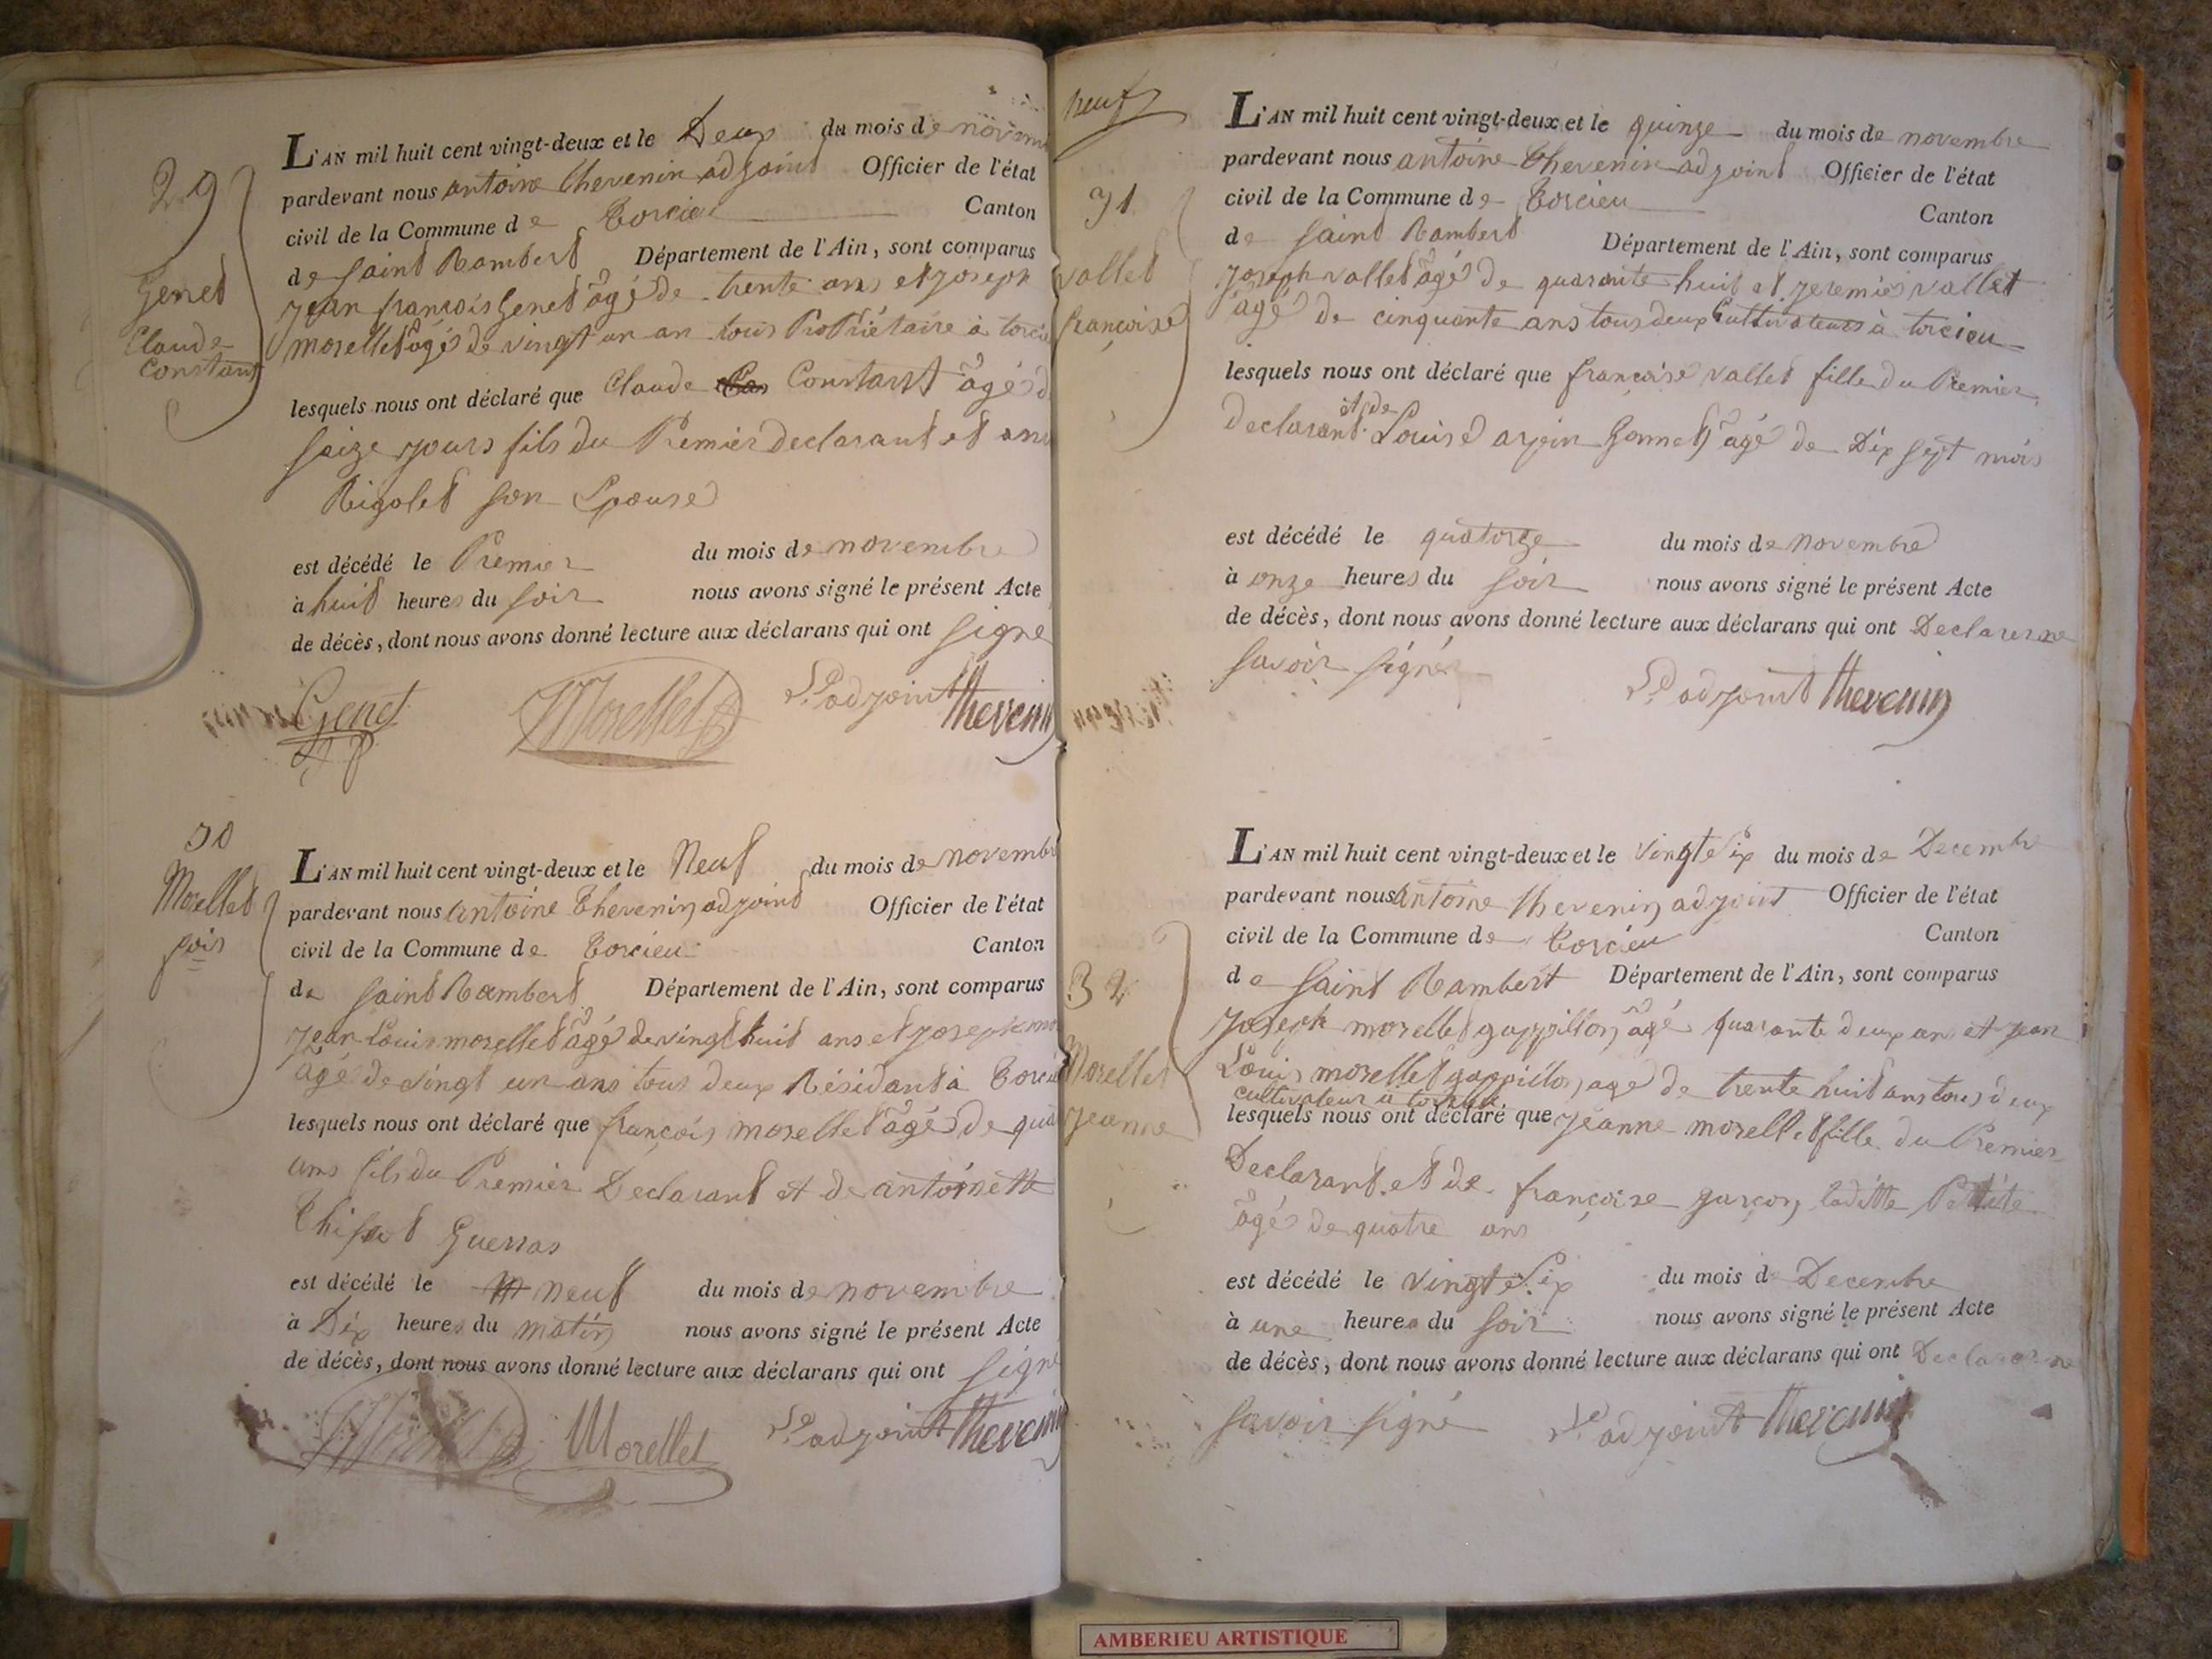 29
Genet
Claude
Constant
L'AN mil huit cent vingt-deux et le Deux du mois de
pardevant nous antoine thevenin adjoint Officier de l'état
civil de la Commune de torcieu Canton
de saint Rambert Département de l'Ain, sont comparus
jean françois Genet âgé de trente ans et joseph
morellet âgé de vingt un an tous Propriétaire à
lesquels nous ont déclaré que Claude Constant âgé
seize jours fils du Premier declarant et
Rigolet son Epouse
est décédé le Premier du mois de novembre
à huit heures du soir nous avons signé le présent Acte
de décès, dont nous avons donné lecture aux déclarans qui ont signé
Genet Morellet L'adjoint thevenin
30
Morellet
L'AN mil huit cent vingt-deux et le Neuf du mois de novembre
pardevant nous antoine thevenin adjoint Officier de l'état
civil de la Commune de torcieu Canton
de saint Rambert Département de l'Ain, sont comparus
jean Louis morellet âgé de vingt huit ans et joseph
âgé de vingt un ans tous deux Résidant à
lesquels nous ont déclaré que françois morellet âgé de
ans fils du Premier Declarant et de antoinette
est décédé le neuf du mois de novembre
à Dix heures du matin nous avons signé le présent Acte
de décès, dont nous avons donné lecture aux déclarans qui ont signé
Morellet L'adjoint thevenin
neuf
31
vallet
françoise
L'AN mil huit cent vingt-deux et le quinze du mois de novembre
pardevant nous antoine thevenin adjoint Officier de l'état
civil de la Commune de torcieu Canton
de saint Rambert Département de l'Ain, sont comparus
joseph vallet âgé de quarante huit et jeremie vallet
âgé de cinquante ans tous deux Cultivateurs à torcieu
lesquels nous ont déclaré que françoise vallet fille du Premier
declarant et de Louise âgé de Dix sept mois
est décédé le quatorze du mois de novembre
à onze heures du soir nous avons signé le présent Acte
de décès, dont nous avons donné lecture aux déclarans qui ont Declarer ne
savoir signé L'adjoint thevenin
32
Morellet
jeanne
L'AN mil huit cent vingt-deux et le vingt Six du mois de Decembre
pardevant nous antoine thevenin adjoint Officier de l'état
civil de la Commune de torcieu Canton
de saint Rambert Département de l'Ain, sont comparus
joseph morellet gappillon âgé quarante deux ans et jean
Louis morellet gappillon age de trente huit ans tous deux
cultivateur a
lesquels nous ont déclaré que jeanne morellet fille du Premier
Declarant et de françoise garçon laditte
âgé de quatre ans
est décédé le vingt Six du mois d Decembre
à une heures du soir nous avons signé le présent Acte
de décès, dont nous avons donné lecture aux déclarans qui ont Declarer ne
savoir signé L'adjoint thevenin
AMBERIEU ARTISTIQUE